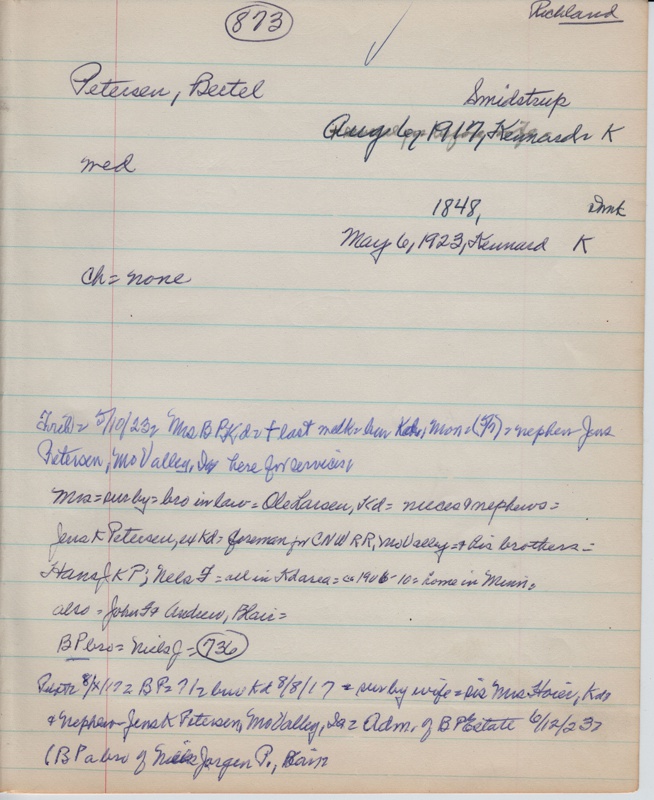 873
Richland
Petersen, Bertel
Smidstrup
Aug 6, 1917, Kennard K
med
1848, Dmk
May 6, 1923, Kennard K
Ch = none
5/10/23 = Mrs B P, Kd = + last = bur Kd, Mon = (Fr) = nephew Jens
Petersen, Mo Valley, Ia here for services,
Mrs = sur by = bro in law = Ole Larsen, Kd = nieces & nephews =
Jens K Petersen, ex Kd = foreman for CNW RR, Mo Valley = & his brothers =
Hans J K P; Nels F = all in Kd area = ca 1906-10 = home in Minn =
also = John F & Andrew, Blair =
B P bro = Niels J = 736
= B P = 71 = bur Kd 8/8/17 = sur by wife = sis Mrs Hoier, Kd
& nephew Jens K Petersen, Mo Valley, Ia = Adm. of B P Estate 6/12/23
(B P a bro of Jorgen P., Blair